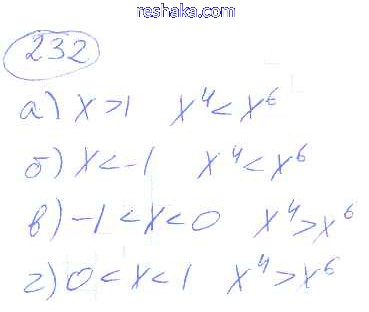 reshaka.com
232
а) x > 1 x⁴ < x⁶
б) x < -1 x⁴ < x⁶
в) -1 < x < 0 x⁴ > x⁶
г) 0 < x < 1 x⁴ > x⁶